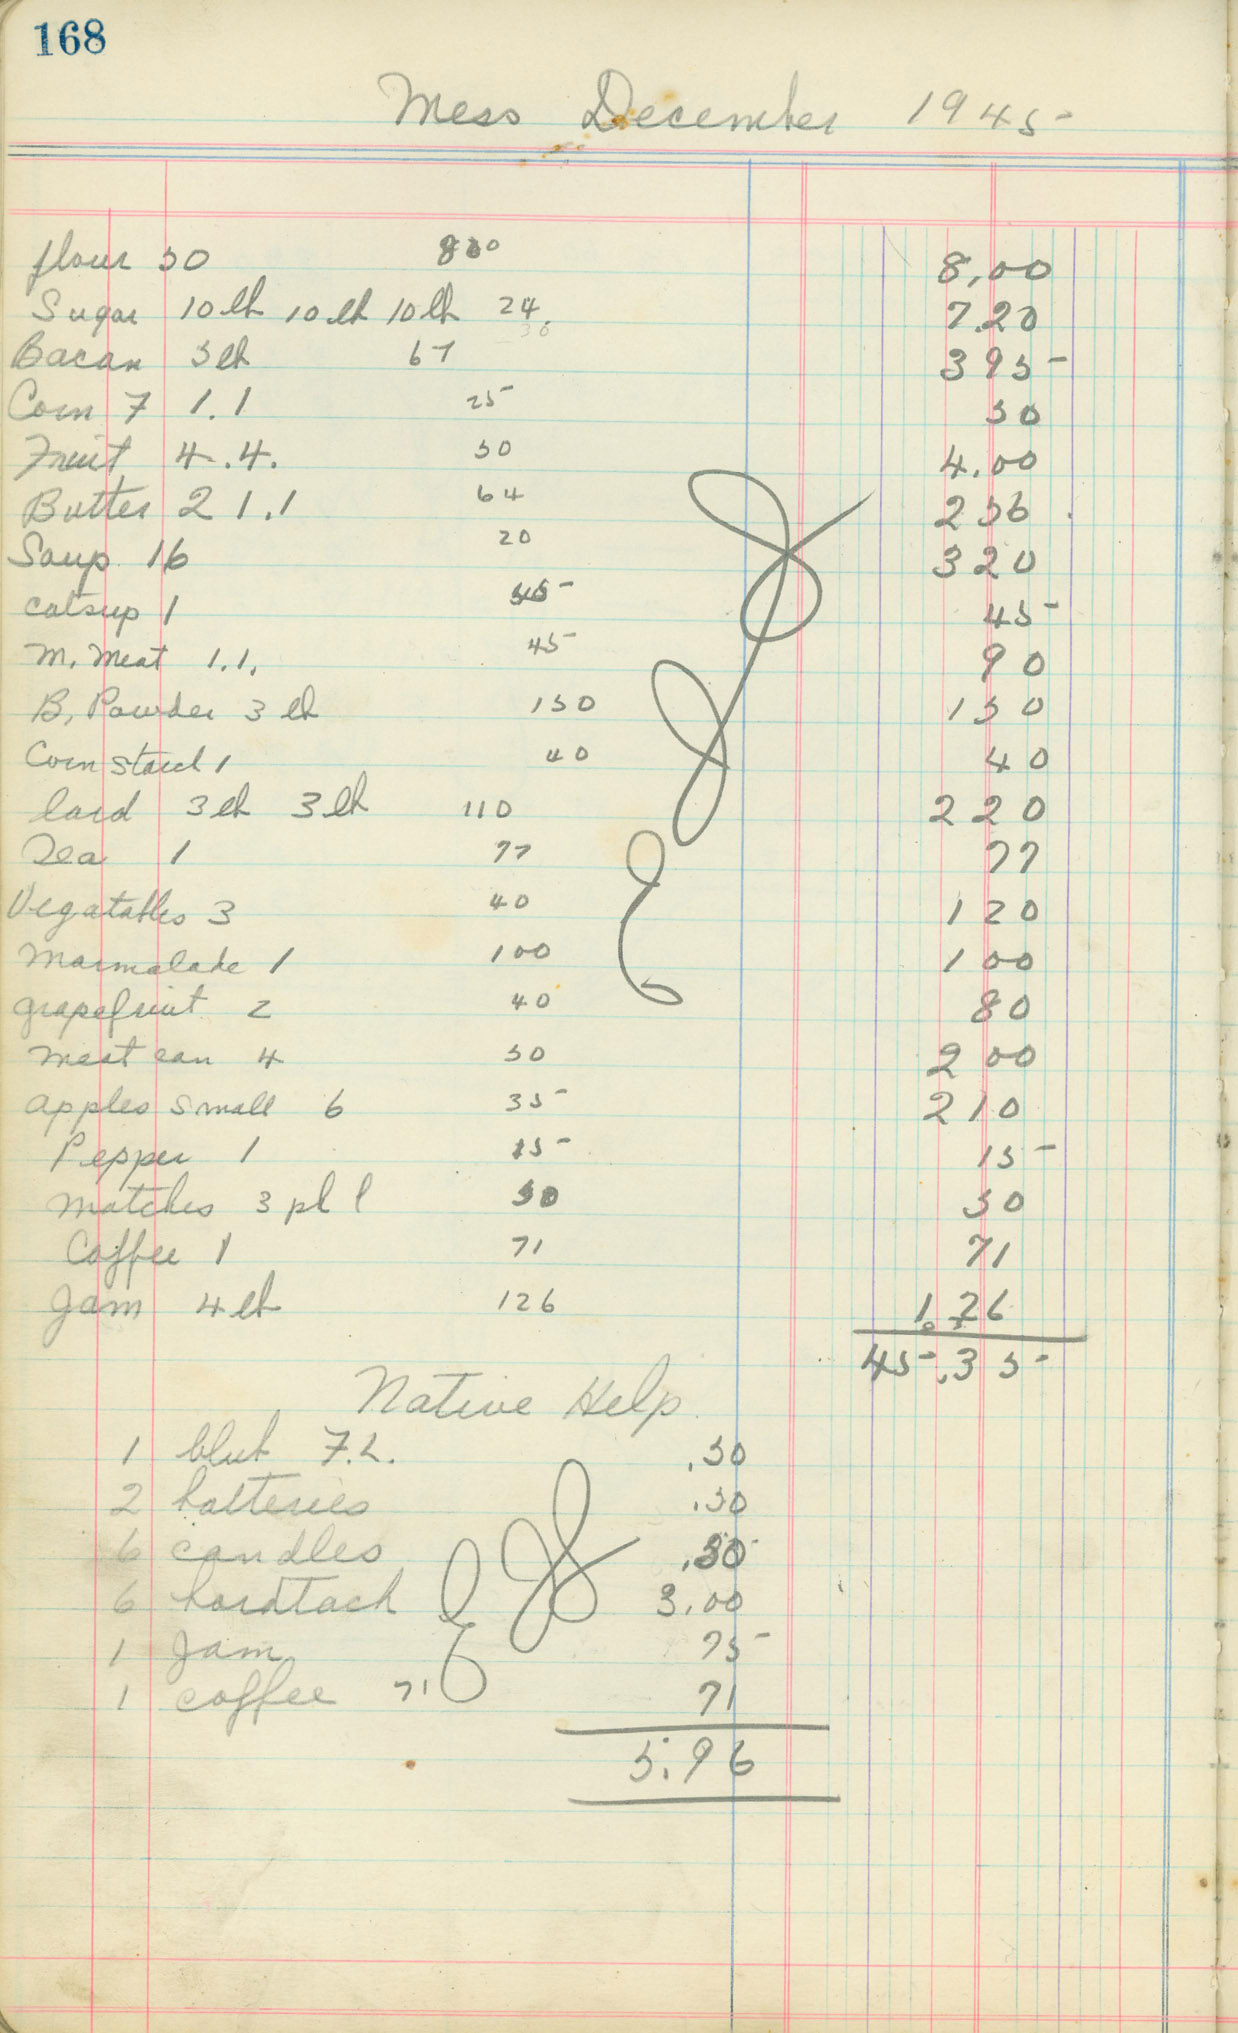 168
Mess December 1945
flour 50 800 8.00
Sugar 10 lb 10 lb 10 lb 24. 7.20
30
Bacan 5 lb 67 395
Corn 7 1.1 25 50
Fruit 4.4. 50 4.00
Butter 2 1.1 64 256
Soup 16 20 320
catsup 1 45 45
M. Meat 1.1. 45 90
B. Powder 3 lb 150 150
Corn starch 1 40 40
lard 3 lb 3 lb 110 220
Tea 1 77 77
Vegatables 3 40 120
Marmalade 1 100 100
grapefruit 2 40 80
meat can 4 50 200
apples small 6 35 210
Pepper 1 15 15
matches 3 pk 1 50 50
Coffee 1 71 71
Jam 4 lb 126 1.26
45.35
Native Help
1 F.L. .50
2 batteries .30
6 candles
6 hardtack 3.00
1 Jam 75
1 coffee 71 71
5.96